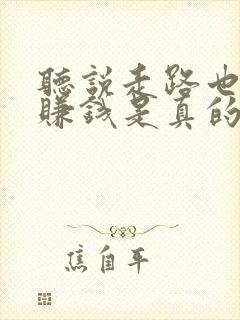 聽說走路也
賺錢是真的
焦自平